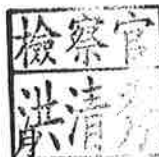 檢察官
洪清